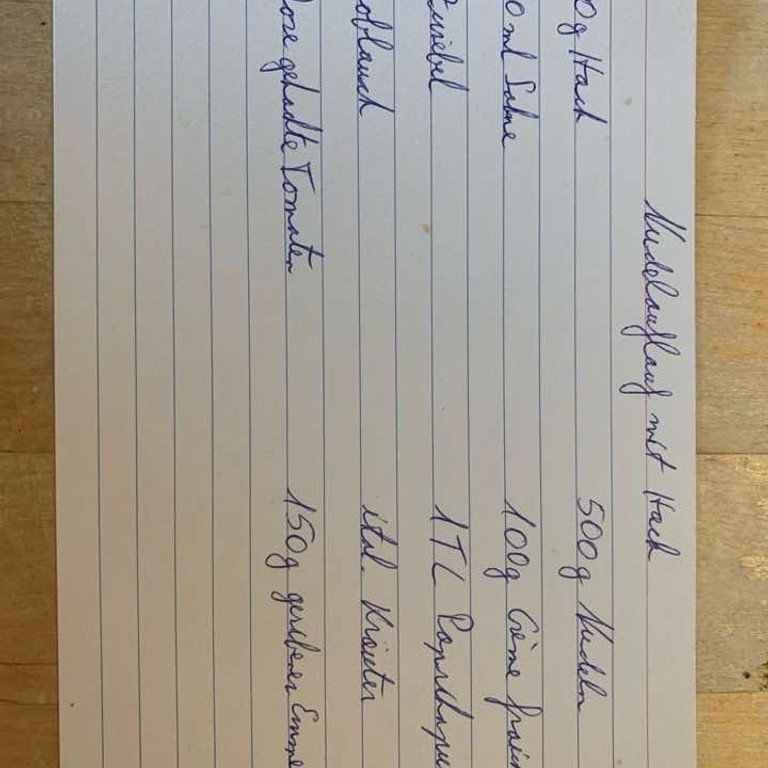 Nudelauflauf mit Hack
0g Hack 500g Nudeln
0 ml Sahne 100g Crème fraîc
Zwiebel 1 TL Paprikapu
oblauch ital. Kräuter
Dose gehackte Tomaten 150g geriebener Emme